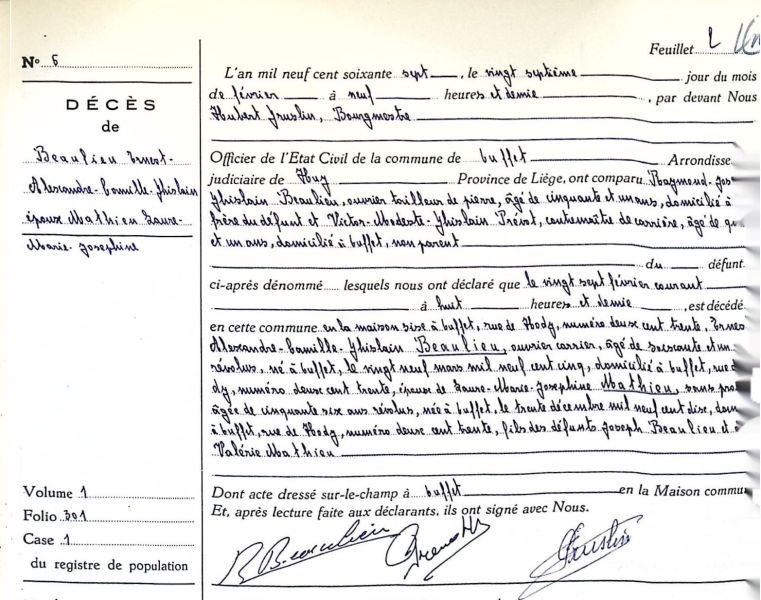 Feuillet 2
Nº 6
DÉCÈS
de
Beaulieu Ernest-
Alexandre-Camille-Ghislain
époux Mathieu Laure-
Marie-Josephine
L'an mil neuf cent soixante sept, le vingt septième jour du mois
de février à neuf heures et demie, par devant Nous
Hubert Fruslin, Bourgmestre
Officier de l'Etat Civil de la commune de Ouffet Arrondisse
judiciaire de Huy Province de Liège, ont comparu Raymond-Jos
Ghislain Beaulieu, ouvrier tailleur de pierre, âgé de cinquante et un ans, domicilié à
frère du défunt et Victor-Modeste-Ghislain Prévot, contremaître de carrière, âgé de q
et un ans, domicilié à Ouffet, non parent
du défunt.
ci-après dénommé lesquels nous ont déclaré que le vingt sept février courant
à huit heures et demie, est décédé
en cette commune en la maison sise à Ouffet, rue de Hody, numéro deux cent trente, Ernes
Alexandre-Camille-Ghislain Beaulieu, ouvrier carrier, âgé de soixante et un
révolus, né à Ouffet, le vingt neuf mars mil neuf cent cinq, domicilié à Ouffet, rue d
dy, numéro deux cent trente, époux de Laure-Marie-Josephine Mathieu, sans pro
âgée de cinquante six ans révolus, née à Ouffet, le trente décembre mil neuf cent dix, dom
à Ouffet, rue de Hody, numéro deux cent trente, fils des défunts Joseph Beaulieu et d
Valérie Mathieu
Dont acte dressé sur-le-champ à Ouffet en la Maison commu
Et, après lecture faite aux déclarants, ils ont signé avec Nous.
Volume 1
Folio 301
Case 1
du registre de population
R Beaulieu